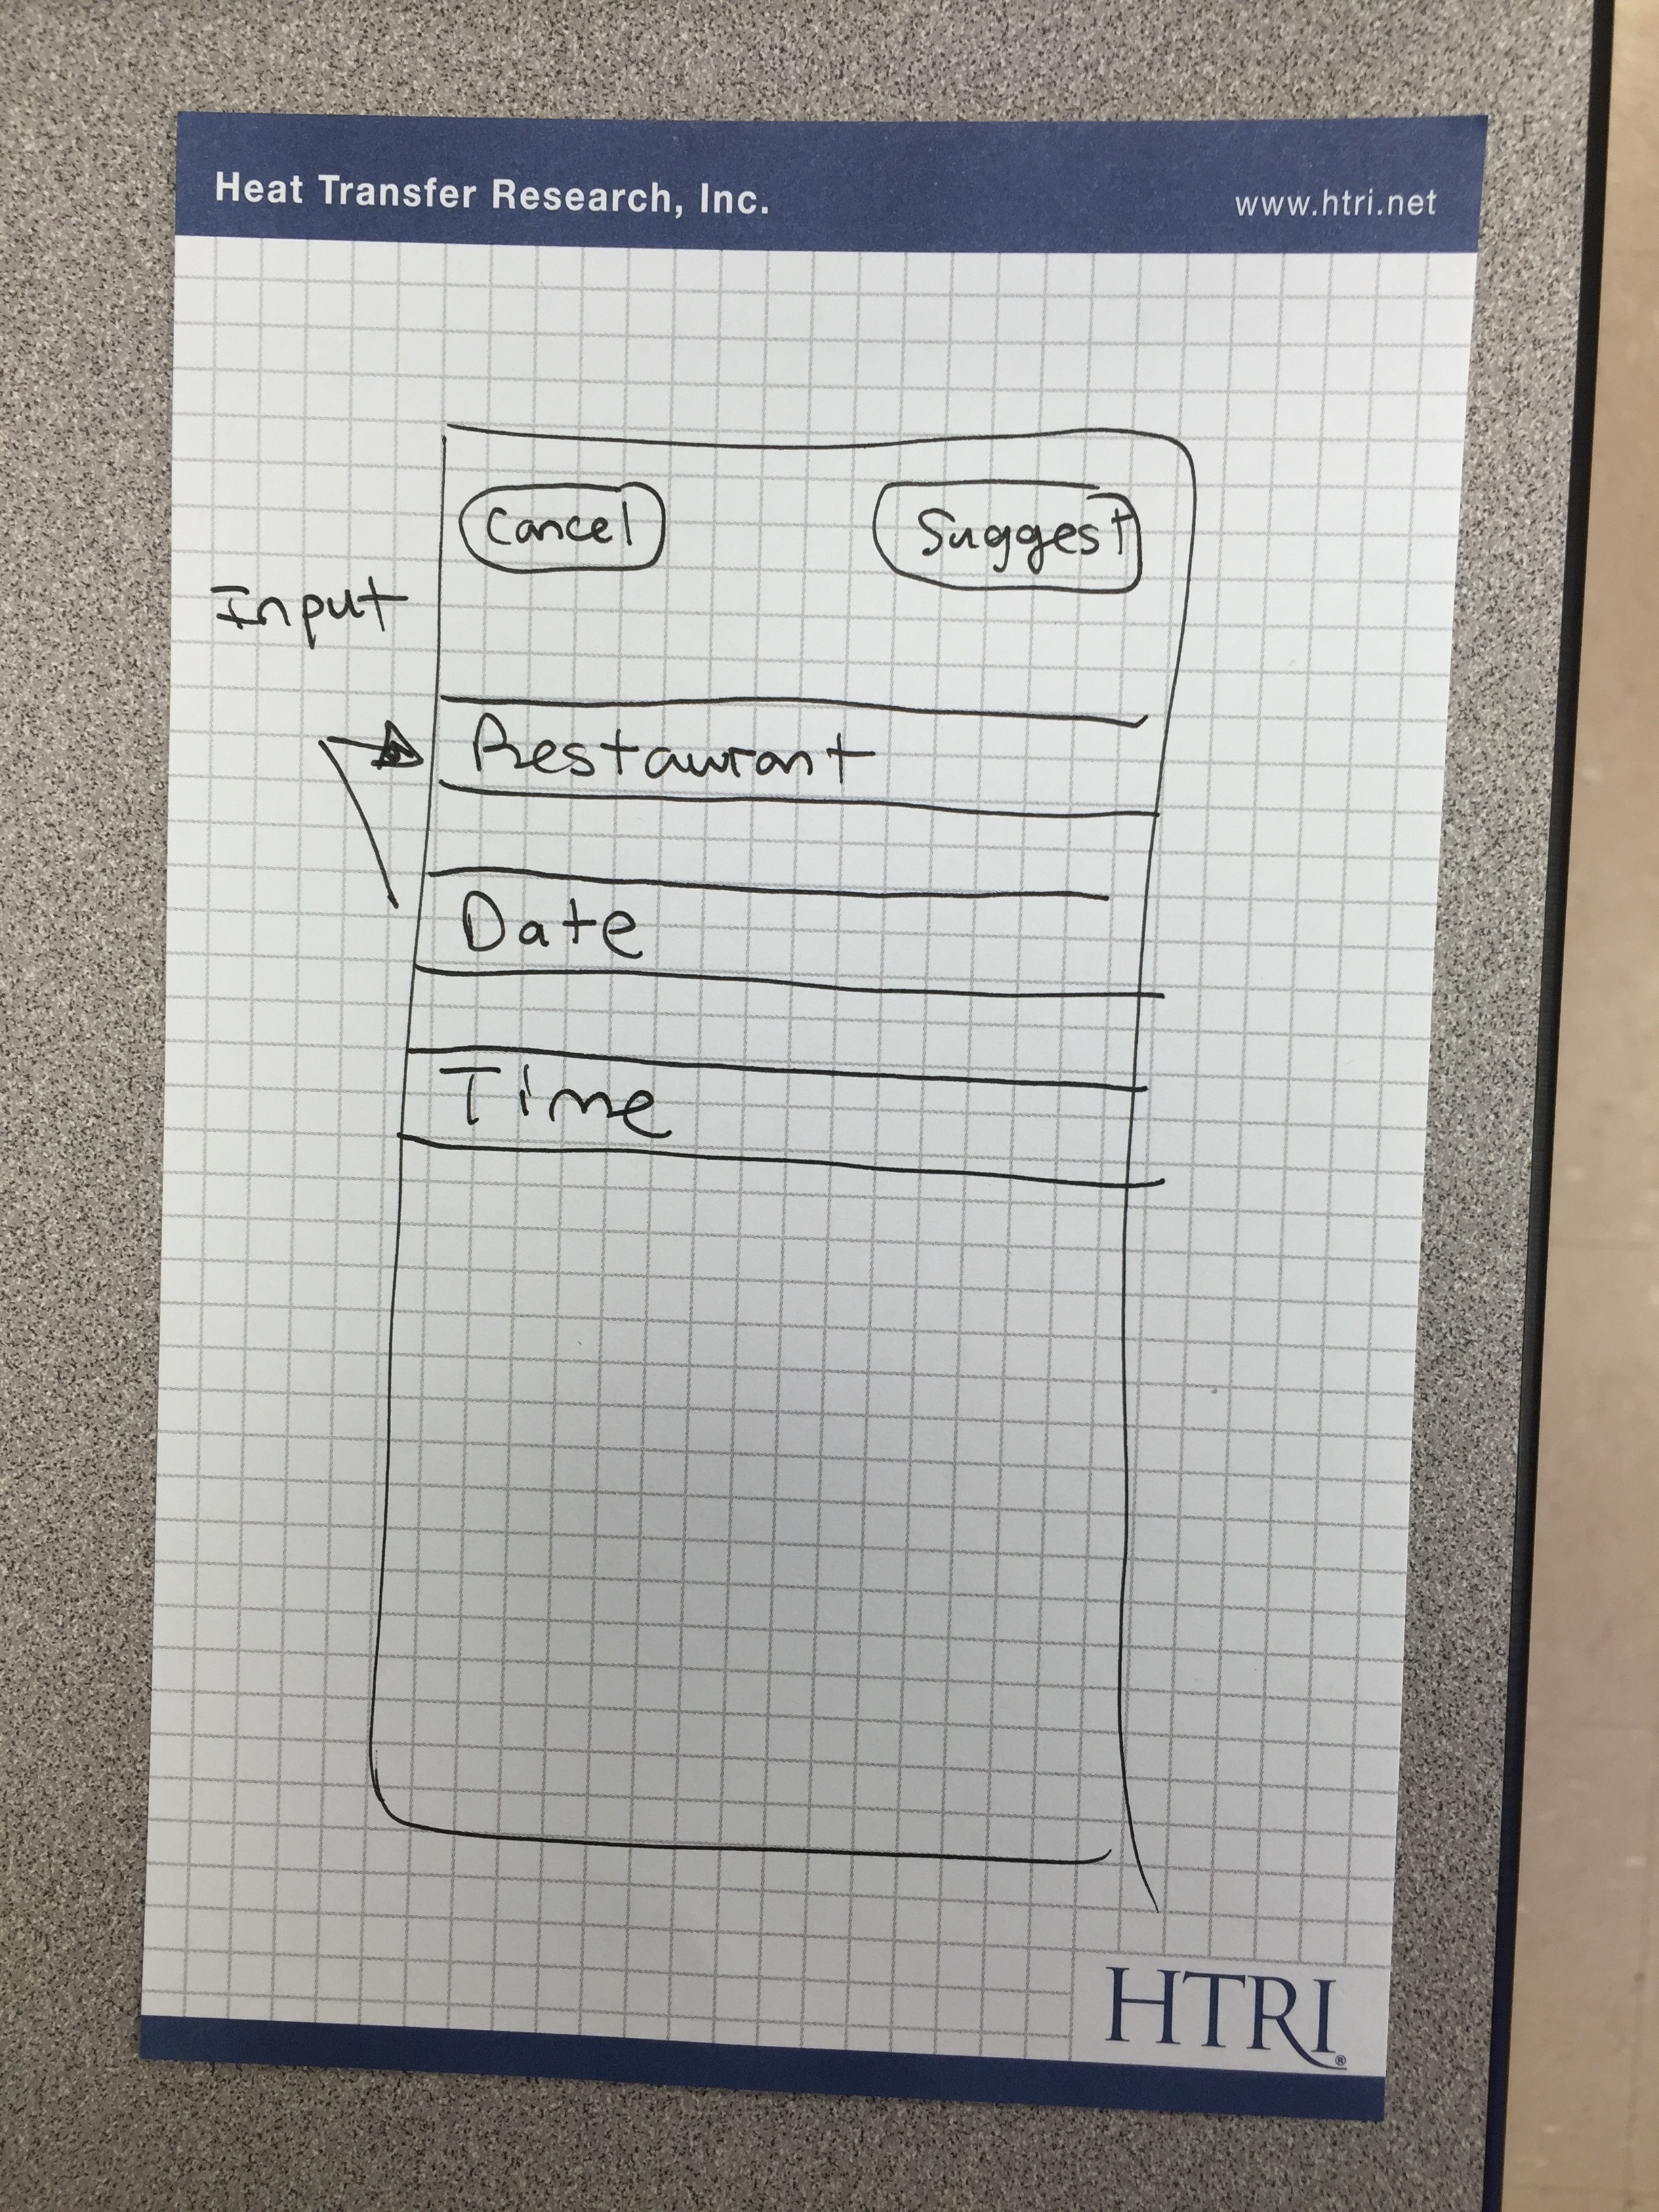 Heat Transfer Research, Inc. www.htri.net
Cancel Suggest
Input
Restaurant
Date
Time
HTRI®